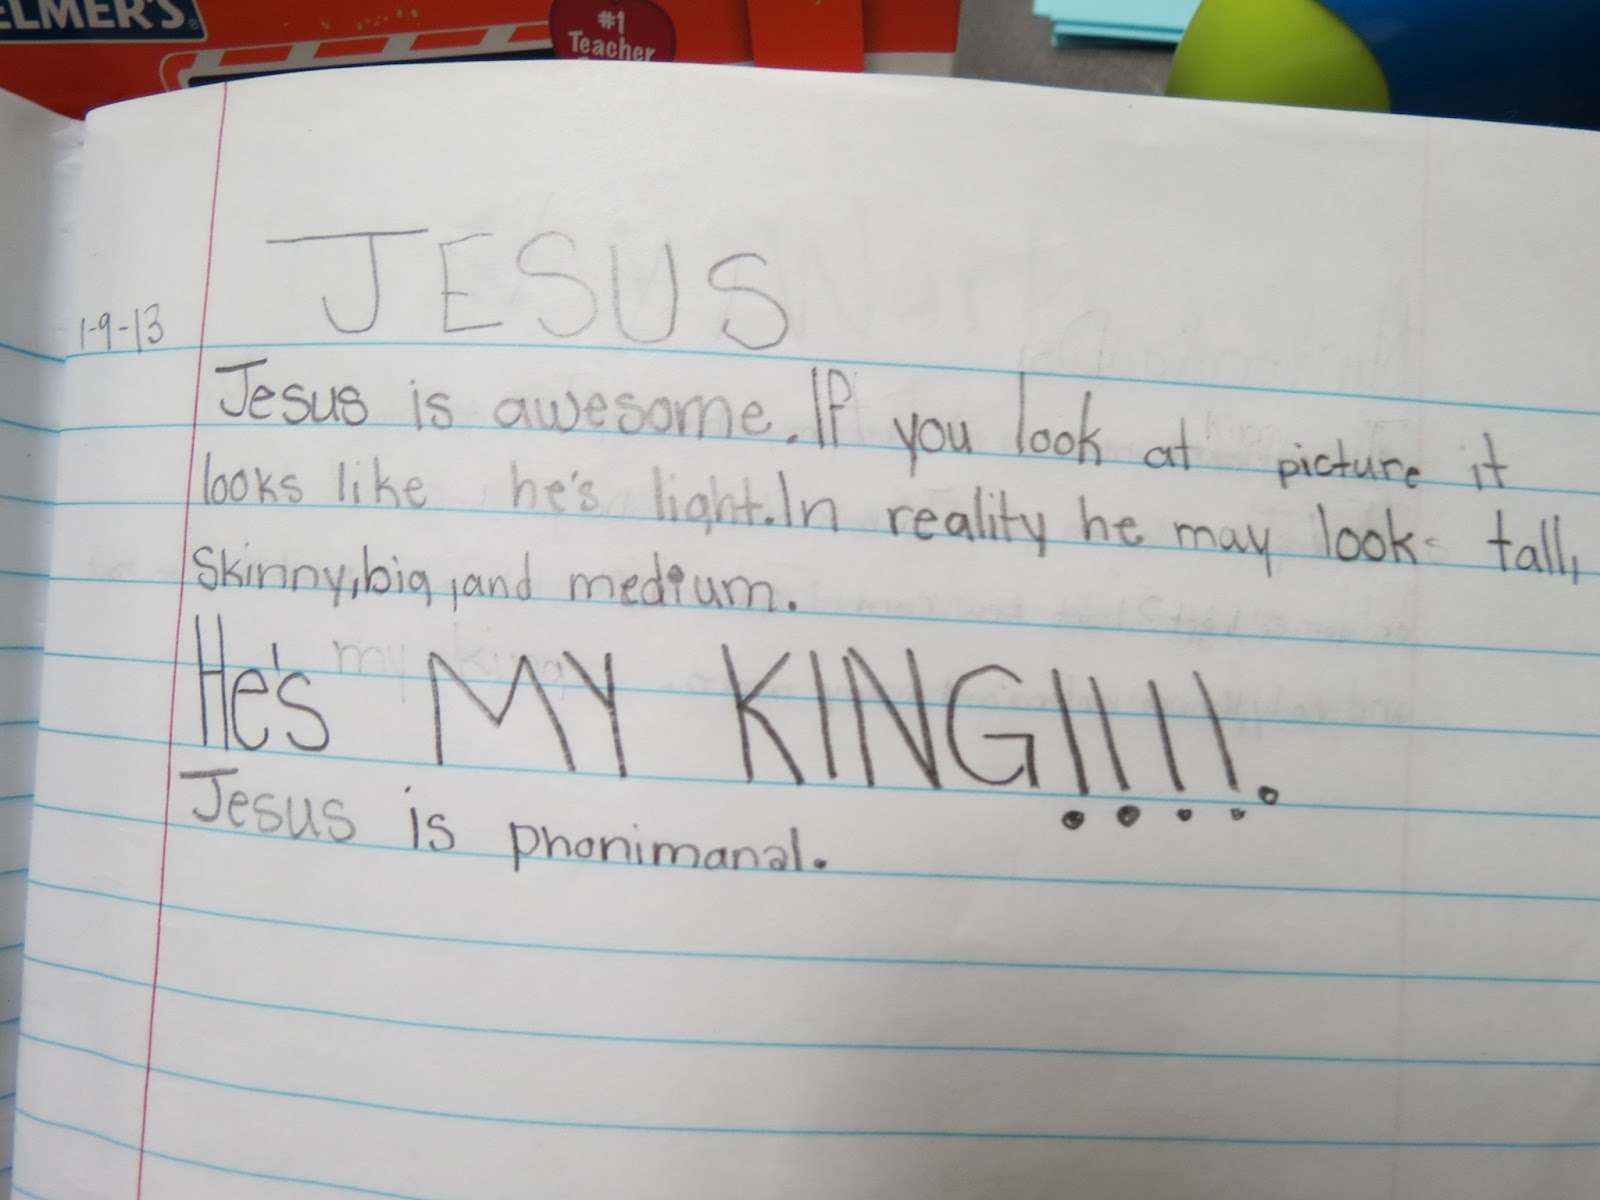 ELMER'S
#1
Teacher
JESUS
1-9-13
Jesus is awesome. If you look at picture it
looks like he's light. In reality he may look tall,
skinny, big, and medium.
He's MY KING!!!!.
Jesus is phonimanal.